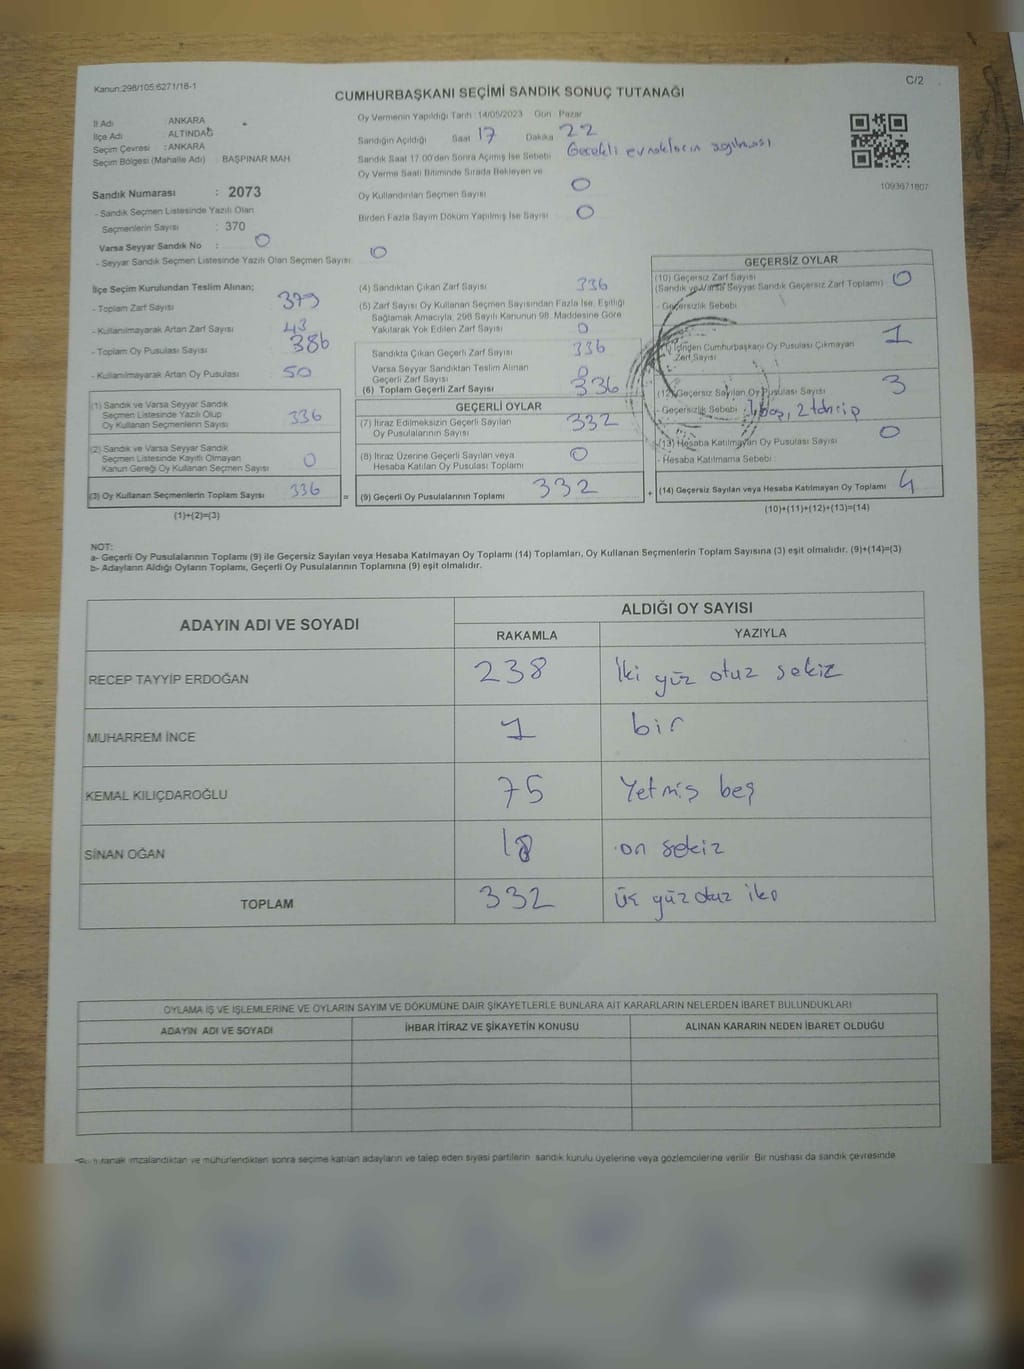 Kanun:298/105;6271/18-1
C/2
CUMHURBAŞKANI SEÇİMİ SANDIK SONUÇ TUTANAĞI
İl Adı : ANKARA
İlçe Adı : ALTINDAĞ
Seçim Çevresi : ANKARA
Seçim Bölgesi (Mahalle Adı) : BAŞPINAR MAH.
Sandık Numarası : 2073
- Sandık Seçmen Listesinde Yazılı Olan
Seçmenlerin Sayısı : 370
Varsa Seyyar Sandık No : 0
- Seyyar Sandık Seçmen Listesinde Yazılı Olan Seçmen Sayısı: 0
Oy Vermenin Yapıldığı Tarih :14/05/2023 Gün : Pazar
Sandığın Açıldığı Saat 17 Dakika 22
Sandık Saat 17.00'den Sonra Açılmış İse Sebebi Gerekli evrakların
Oy Verme Saati Bitiminde Sırada Bekleyen ve
Oy Kullandırılan Seçmen Sayısı 0
Birden Fazla Sayım Döküm Yapılmış İse Sayısı 0
1093671807
İlçe Seçim Kurulundan Teslim Alınan;
- Toplam Zarf Sayısı 379
- Kullanılmayarak Artan Zarf Sayısı 43
- Toplam Oy Pusulası Sayısı 386
- Kullanılmayarak Artan Oy Pusulası 50
(1) Sandık ve Varsa Seyyar Sandık
Seçmen Listesinde Yazılı Olup
Oy Kullanan Seçmenlerin Sayısı 336
(2) Sandık ve Varsa Seyyar Sandık
Seçmen Listesinde Kayıtlı Olmayan
Kanun Gereği Oy Kullanan Seçmen Sayısı 0
(3) Oy Kullanan Seçmenlerin Toplam Sayısı 336 =
(1)+(2)=(3)
(4) Sandıktan Çıkan Zarf Sayısı 336
(5) Zarf Sayısı Oy Kullanan Seçmen Sayısından Fazla İse, Eşitliği
Sağlamak Amacıyla, 298 Sayılı Kanunun 98. Maddesine Göre
Yakılarak Yok Edilen Zarf Sayısı 0
Sandıkta Çıkan Geçerli Zarf Sayısı 336
Varsa Seyyar Sandıktan Teslim Alınan
Geçerli Zarf Sayısı 0
(6) Toplam Geçerli Zarf Sayısı 336
GEÇERLİ OYLAR
(7) İtiraz Edilmeksizin Geçerli Sayılan
Oy Pusulalarının Sayısı 332
(8) İtiraz Üzerine Geçerli Sayılan veya
Hesaba Katılan Oy Pusulası Toplamı 0
(9) Geçerli Oy Pusulalarının Toplamı 332 +
GEÇERSİZ OYLAR
(10) Geçersiz Zarf Sayısı 0
(Sandık ve Varsa Seyyar Sandık Geçersiz Zarf Toplamı)
- Geçersizlik Sebebi :
(11) İçinden Cumhurbaşkanı Oy Pusulası Çıkmayan
Zarf Sayısı 1
(12) Geçersiz Sayılan Oy Pusulası Sayısı 3
- Geçersizlik Sebebi : 1 boş, 2 tahrip
(13) Hesaba Katılmayan Oy Pusulası Sayısı 0
- Hesaba Katılmama Sebebi :
(14) Geçersiz Sayılan veya Hesaba Katılmayan Oy Toplamı 4
(10)+(11)+(12)+(13)=(14)
NOT:
a- Geçerli Oy Pusulalarının Toplamı (9) ile Geçersiz Sayılan veya Hesaba Katılmayan Oy Toplamı (14) Toplamları, Oy Kullanan Seçmenlerin Toplam Sayısına (3) eşit olmalıdır. (9)+(14)=(3)
b- Adayların Aldığı Oyların Toplamı, Geçerli Oy Pusulalarının Toplamına (9) eşit olmalıdır.
ADAYIN ADI VE SOYADI
ALDIĞI OY SAYISI
RAKAMLA YAZIYLA
RECEP TAYYİP ERDOĞAN 238 İki yüz otuz sekiz
MUHARREM İNCE 1 bir
KEMAL KILIÇDAROĞLU 75 Yetmiş beş
SİNAN OĞAN 18 on sekiz
TOPLAM 332 üç yüz otuz iki
OYLAMA İŞ VE İŞLEMLERİNE VE OYLARIN SAYIM VE DÖKÜMÜNE DAİR ŞİKAYETLERLE BUNLARA AİT KARARLARIN NELERDEN İBARET BULUNDUKLARI
ADAYIN ADI VE SOYADI İHBAR İTİRAZ VE ŞİKAYETİN KONUSU ALINAN KARARIN NEDEN İBARET OLDUĞU
tutanak imzalandıktan ve mühürlendikten sonra seçime katılan adayların ve talep eden siyasi partilerin sandık kurulu üyelerine veya gözlemcilerine verilir. Bir nüshası da sandık çevresinde